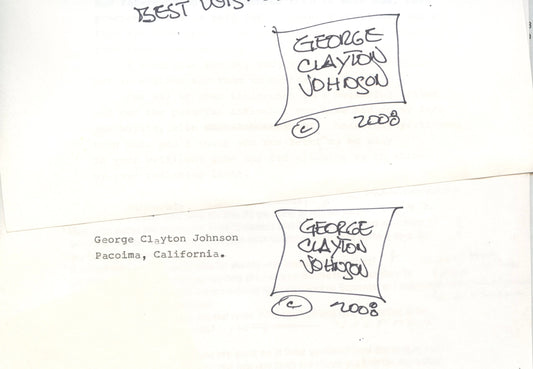 BEST
GEORGE
CLAYTON
JOHNSON
© 2008
George Clayton Johnson
Pacoima, California.
GEORGE
CLAYTON
JOHNSON
© 2008